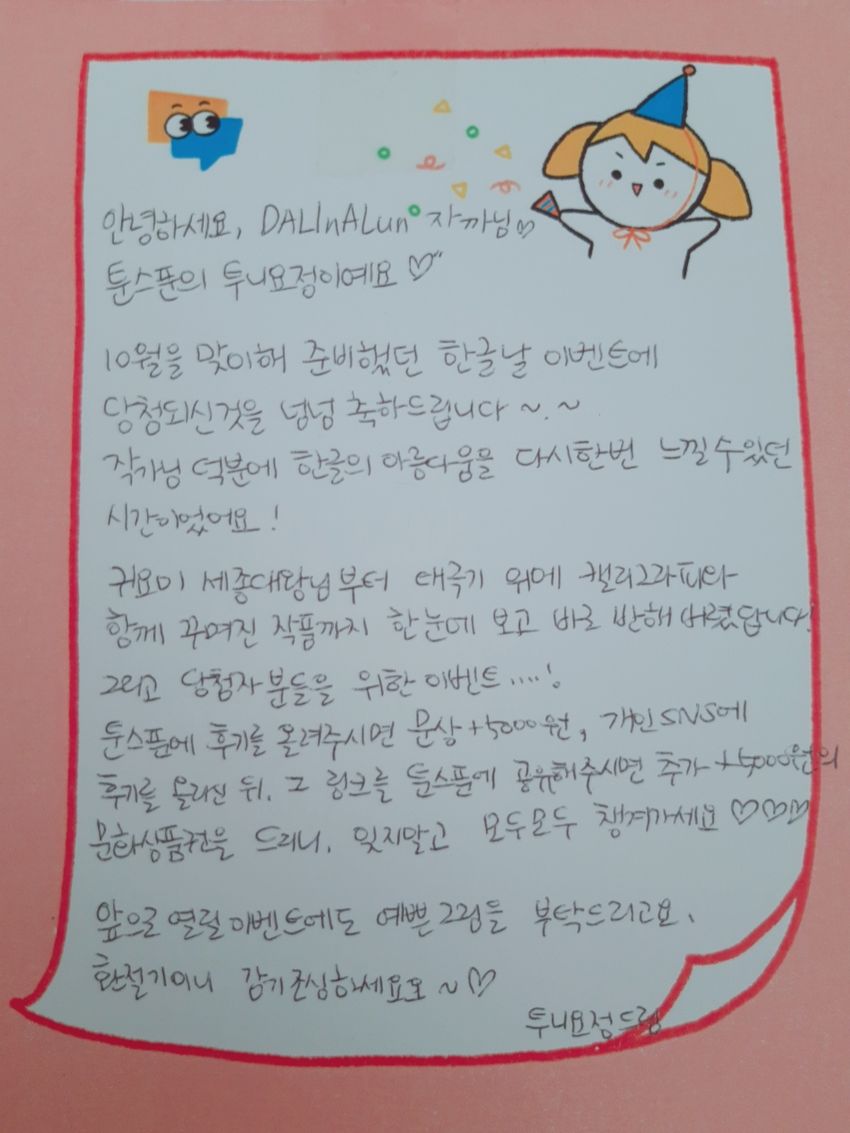 안녕하세요, DALInALun 자까님♡
툰스푼의 투니요정이예요 ♡
10월을 맞이해 준비했던 한글날 이벤트에
당첨되신것을 넘넘 축하드립니다 ~.~
작가님 덕분에 한글의 아름다움을 다시한번 느낄수있던
시간이었어요!
귀요미 세종대왕님부터 태극기 위에 캘리그라피와
함께 꾸며진 작품까지 한눈에 보고 바로 반해 버렸답니다!
그리고 당첨자분들을 위한 이벤트....!
툰스푼에 후기를 올려주시면 문상 +5000원, 개인SNS에
후기를 올리신 뒤, 그 링크를 툰스푼에 공유해주시면 추가 +5000원의
문화상품권을 드리니, 잊지말고 모두모두 챙겨가세요 ♡♡♡
앞으로 열릴 이벤트에도 예쁜그림들 부탁드리고요,
환절기이니 감기조심하세요오 ~ ♡
투니요정드림